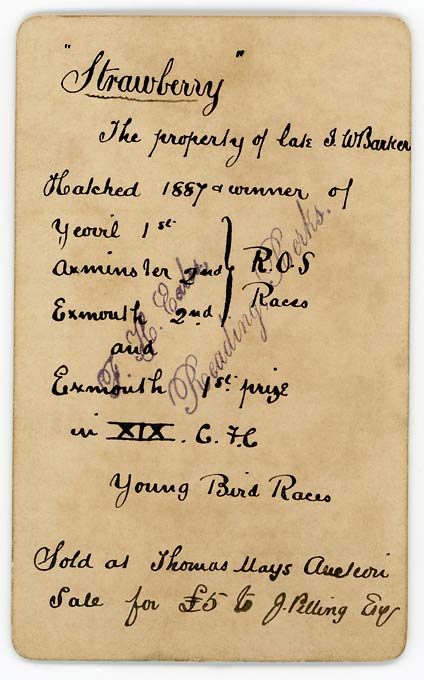 "Strawberry"
The property of late J. W Barker
Hatched 1887 & winner of
Yeovil 1st
Axminster 2nd
Exmouth 2nd
R.O.S
Races
and
Exmouth 1st prize
in XIX. C.F.C
Young Bird Races
Sold at Thomas Mays Auction
Sale for £5 to J. Pilling Esq
Reading, Berks.